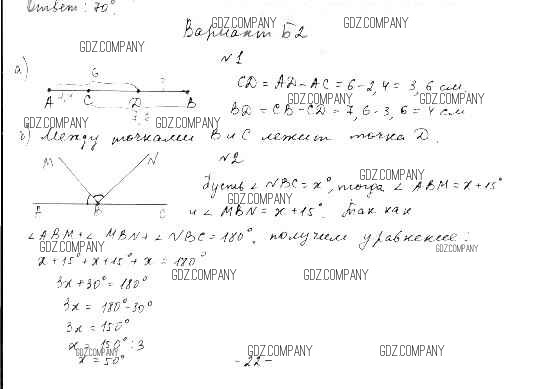 Ответ: 70°.
GDZ.COMPANY GDZ.COMPANY
Вариант Б2
GDZ.COMPANY
№1
а)
6
A C D B
2,4
7,6
CD = AD - AC = 6 - 2,4 = 3,6 см
GDZ.COMPANY GDZ.COMPANY
BD = CB - CD = 7,6 - 3,6 = 4 см
GDZ.COMPANY GDZ.COMPANY
б) Между точками B и C лежит точка D.
№2
M N
A B C
GDZ.COMPANY
Пусть ∠NBC = x°, тогда ∠ABM = x + 15°
GDZ.COMPANY
и ∠MBN = x + 15°. Так как
∠ABM + ∠MBN + ∠NBC = 180°, получим уравнение:
GDZ.COMPANY GDZ.COMPANY
x + 15° + x + 15° + x = 180°
GDZ.COMPANY GDZ.COMPANY
3x + 30° = 180°
3x = 180° - 30°
3x = 150°
x = 150° : 3
GDZ.COMPANY GDZ.COMPANY GDZ.COMPANY
x = 50°
- 22 -